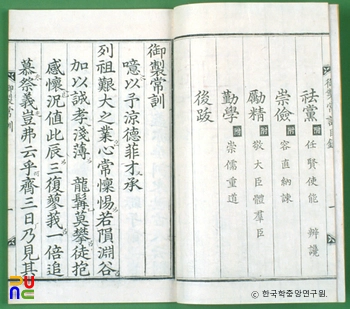 祛黨 附 任賢使能 辨讒
崇儉 附 容直納諫
勵精 附 敬大臣體羣臣
勤學 附 崇儒重道
後跋
御製常訓
噫以予涼德菲才承
列祖艱大之業心常懷惕若隕淵谷
加以誠孝淺薄 龍髥莫攀徒抱
感懷況值此辰三復蓼莪一倍追
慕祭義豈弗云乎齊三日乃見其
御製常訓
© 한국학중앙연구원.